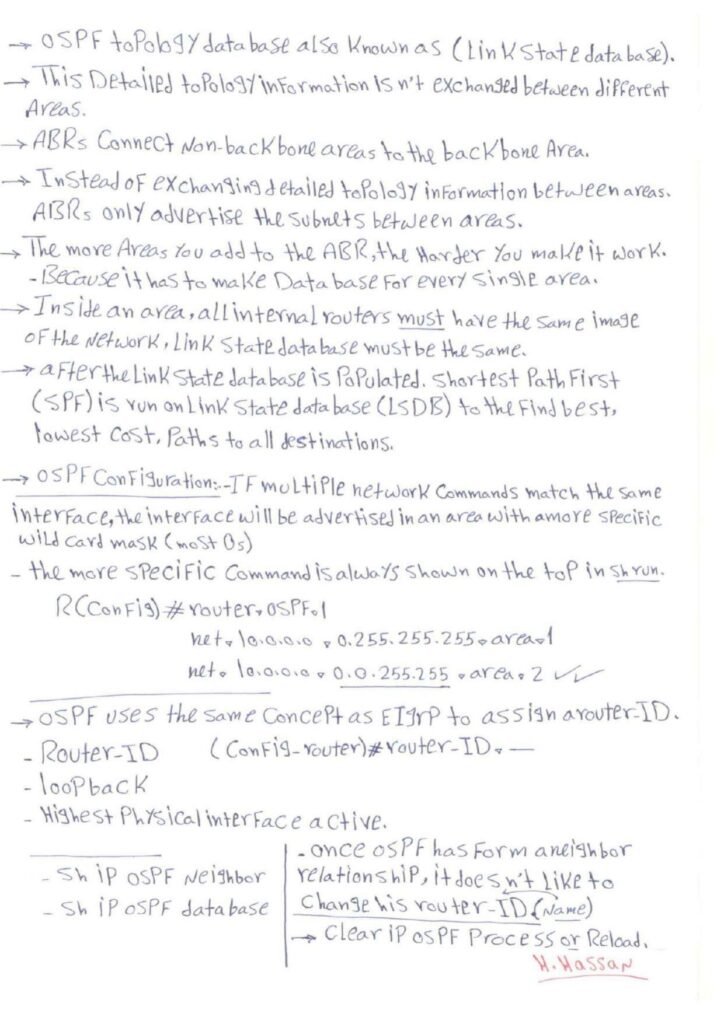 → OSPF toPology database also Known as (Link State database).
→ This Detailed toPology information is n't exchanged between different
Areas.
→ ABRs Connect Non-backbone areas to the backbone Area.
→ Instead of exchanging detailed toPology information between areas.
ABRs only advertise the subnets between areas.
→ The more Areas You add to the ABR, the Harder You make it work.
- Because it has to make Database For every single area.
→ Inside an area, all internal routers must have the same image
of the network, Link State database must be the same.
→ after the Link State database is PoPulated. shortest Path First
(SPF) is run on Link State database (LSDB) to the Find best,
lowest Cost, Paths to all destinations.
→ OSPF Configuration:- IF multiple network Commands match the same
interface, the interface will be advertised in an area with a more specific
wild card mask (most 0s)
- the more specific Command is always shown on the top in sh run.
R(Config)# router OSPF 1
net 10.0.0.0 0.255.255.255 area 1
net 10.0.0.0 0.0.255.255 area 2 ✓✓
→ OSPF uses the same Concept as EIGrP to assign a router-ID.
- Router-ID (Config-router)# router-ID —
- looPback
- Highest Physical interface active.
- Sh iP OSPF Neighbor
- Sh iP OSPF database
- once OSPF has Form a neighbor
relationshiP, it doesn't Like to
Change his router-ID (Name)
→ Clear iP OSPF Process or Reload.
H.Hassan